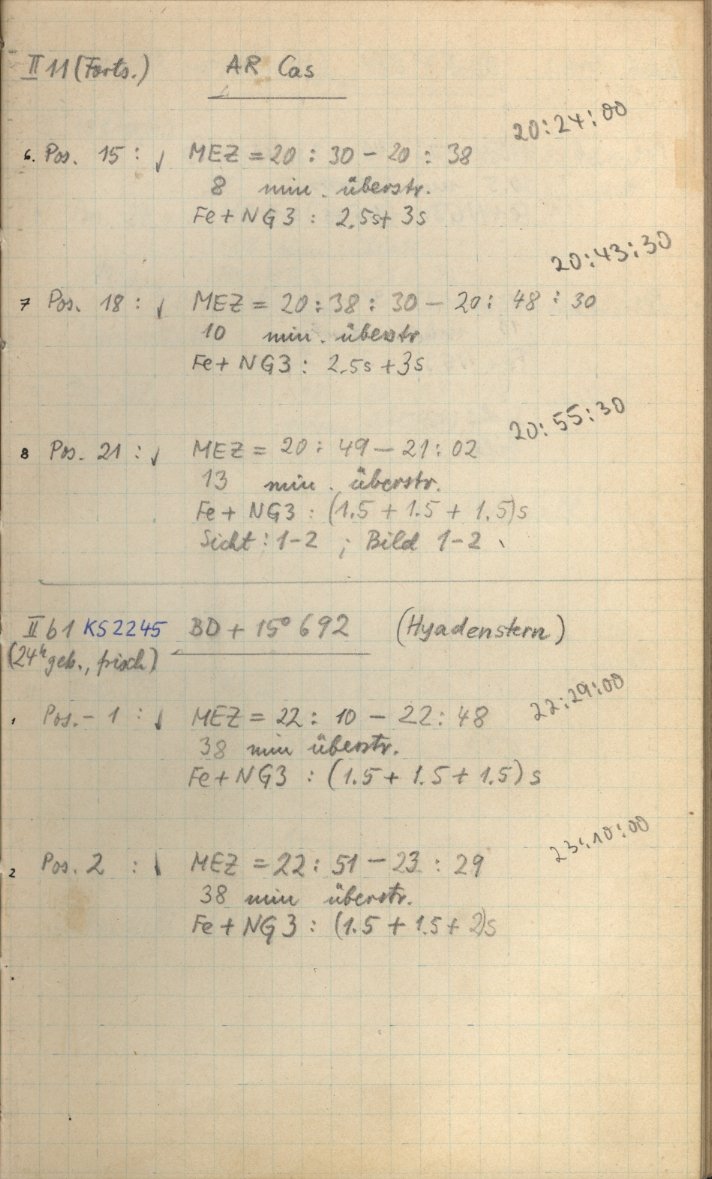 II 11 (Forts.) AR Cas
20:24:00
6. Pos. 15 : ↓ MEZ = 20 : 30 - 20 : 38
8 min. überstr.
Fe + NG3 : 2.5s + 3s
20:43:30
7 Pos. 18 : ↓ MEZ = 20 : 38 : 30 - 20 : 48 : 30
10 min. überstr
Fe + NG3 : 2.5s + 3s
20:55:30
8 Pos. 21 : ↓ MEZ = 20 : 49 - 21 : 02
13 min. überstr.
Fe + NG3 : (1.5 + 1.5 + 1.5)s
Sicht : 1-2 ; Bild 1-2
II b1 KS2245 BD + 15° 692 (Hyadenstern)
(24h geb., frisch)
22:29:00
1 Pos. - 1 : ↓ MEZ = 22 : 10 - 22 : 48
38 min überstr.
Fe + NG3 : (1.5 + 1.5 + 1.5) s
23:10:00
2 Pos. 2 : ↓ MEZ = 22 : 51 - 23 : 29
38 min überstr.
Fe + NG3 : (1.5 + 1.5 + 2)s